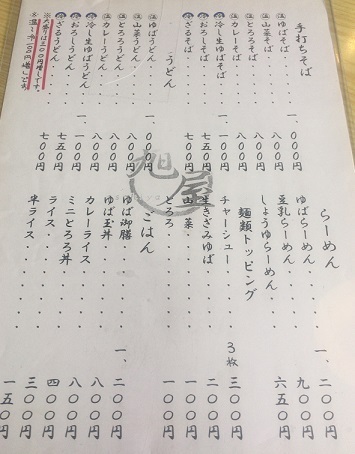 手打ちそば
温ゆばそば・・・・・一、〇〇〇円
温山菜そば・・・・・八〇〇円
温とろろそば・・・・八〇〇円
温カレーそば・・・・八〇〇円
冷冷し生ゆばそば・・一、一〇〇円
冷おろしそば・・・・七五〇円
冷ざるそば・・・・・七〇〇円
うどん
温ゆばうどん・・・・一、〇〇〇円
温山菜うどん・・・・八〇〇円
温とろろうどん・・・八〇〇円
温カレーうどん・・・八〇〇円
冷冷し生ゆばうどん・一、一〇〇円
冷おろしうどん・・・七五〇円
冷ざるうどん・・・・七〇〇円
※大盛りは二〇〇円増しです。
一〇〇円増しです
旭屋
らーめん
ゆばらーめん・・・・・一、二〇〇円
豆乳らーめん・・・・・九〇〇円
しょうゆらーめん・・・六五〇円
麺類トッピング
チャーシュー・・・・3枚 三〇〇円
生きざみゆば・・・・・二〇〇円
山菜・・・・・・・・・一〇〇円
とろろ・・・・・・・・一〇〇円
ごはん
ゆば御膳・・・・・・・一、二〇〇円
ゆば玉丼・・・・・・・八〇〇円
カレーライス・・・・・八〇〇円
ミニとろろ丼・・・・・四〇〇円
ライス・・・・・・・・三〇〇円
半ライス・・・・・・・一五〇円